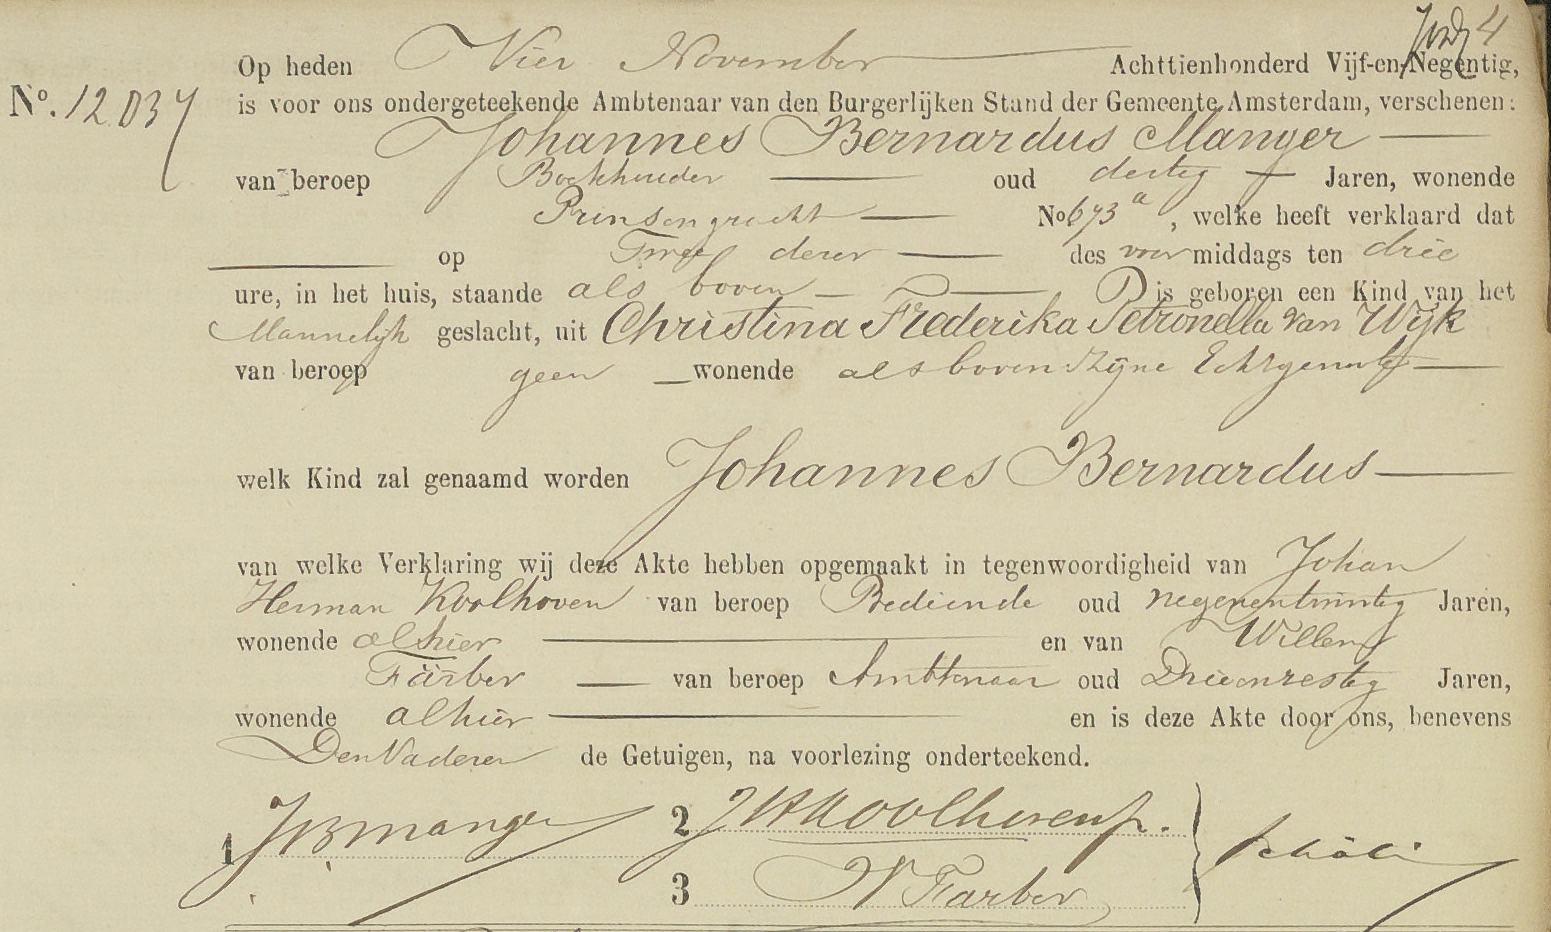 4
Op heden Vier November Achttienhonderd Vijf-en-Negentig,
No. 12037 is voor ons ondergeteekende Ambtenaar van den Burgerlijken Stand der Gemeente Amsterdam, verschenen:
Johannes Bernardus Manger
van beroep Boekhouder oud dertig Jaren, wonende
Prinsengracht No 673a, welke heeft verklaard dat
op Twee dezer des voormiddags ten drie
ure, in het huis, staande als boven is geboren een Kind van het
Mannelijk geslacht, uit Christina Frederika Petronella van Wijk
van beroep geen wonende als boven zijne Echtgenoote
welk Kind zal genaamd worden Johannes Bernardus
van welke Verklaring wij deze Akte hebben opgemaakt in tegenwoordigheid van Johan
Herman Koolhoven van beroep Bediende oud negenentwintig Jaren,
wonende alhier en van Willem
Färber van beroep Ambtenaar oud Drieenzestig Jaren,
wonende alhier en is deze Akte door ons, benevens
Den Vader en de Getuigen, na voorlezing onderteekend.
1 JBManger 2 JHKoolhoven
3 W Färber